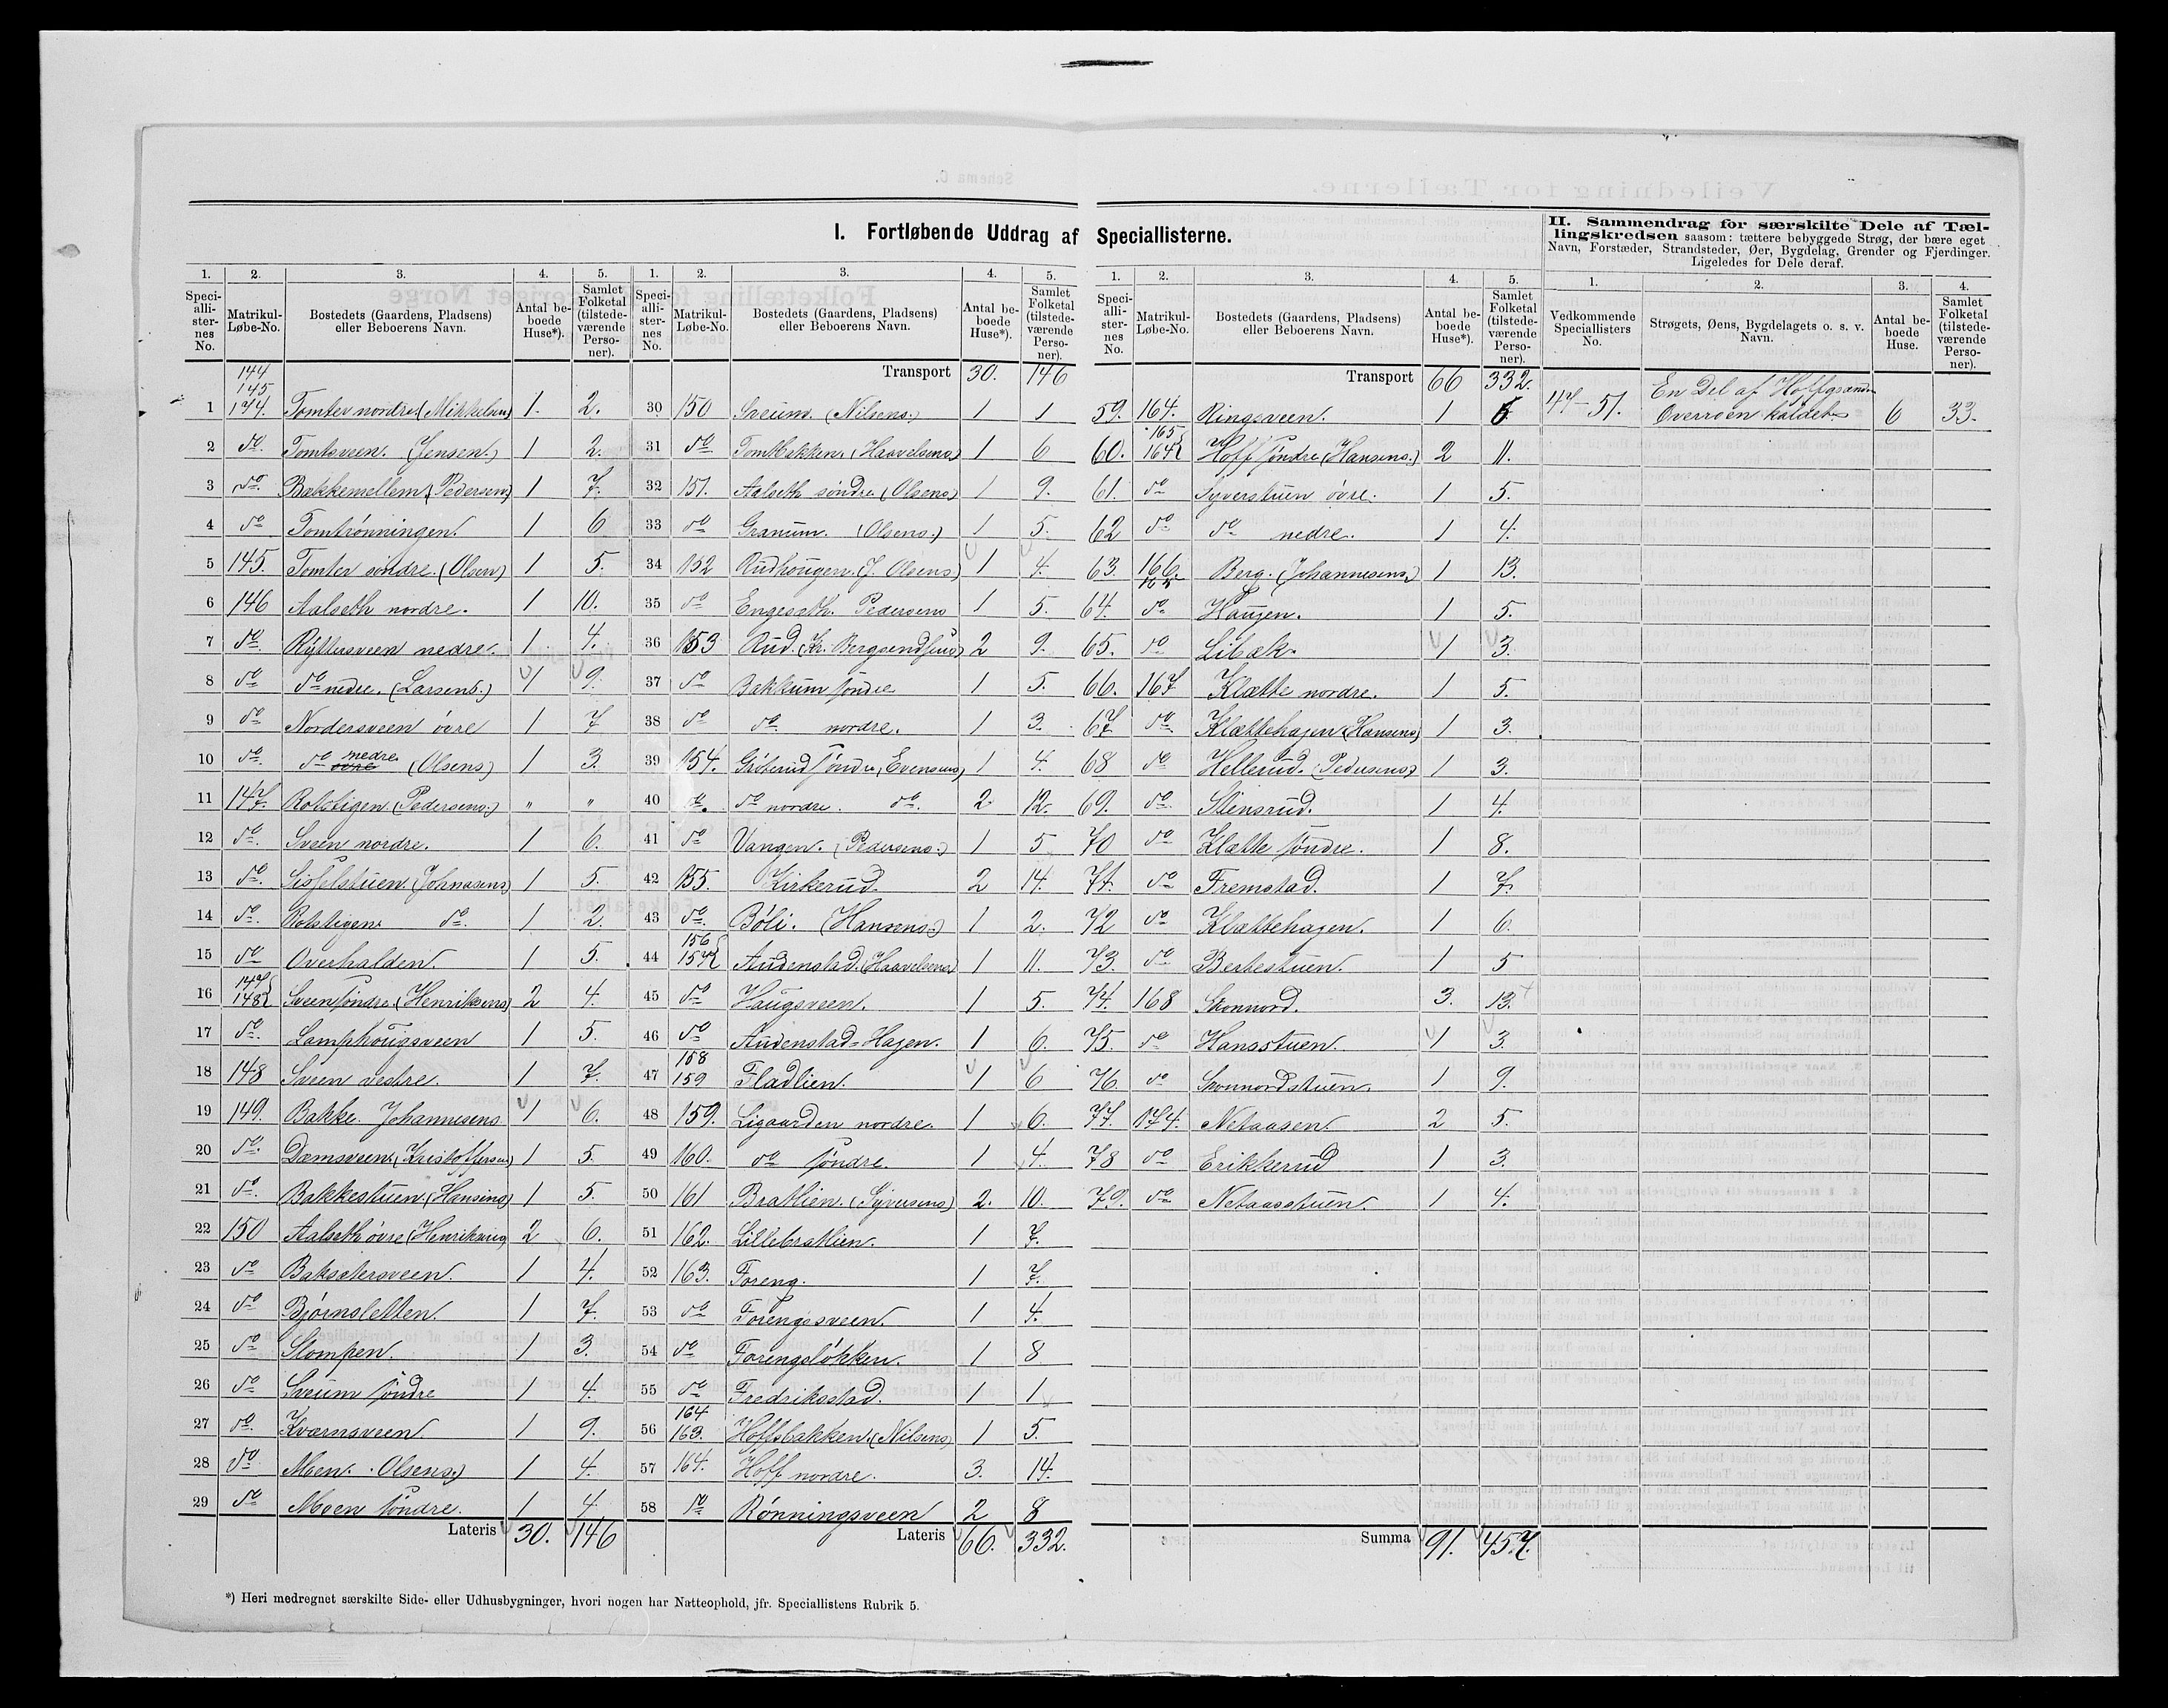 I. Fortløbende Uddrag af Speciallisterne.
II. Sammendrag for særskilte Dele af Tæl-
lingskredsen saasom: tættere bebyggede Strøg, der bære eget
Navn, Forstæder, Strandsteder, Øer, Bygdelag, Grender og Fjerdinger.
Ligeledes for Dele deraf.
1. 2. 3. 4. 5.
Speci-alli-ster-nes No. Matrikul-Løbe-No. Bostedets (Gaardens, Pladsens) eller Beboerens Navn. Antal be-boede Huse*). Samlet Folketal (tilstede-værende Perso-ner).
144 145
1 144. Tomter nordre (Mikkelsen) 1. 2.
2 do. Tomtsveen. (Jensen.) 1 2.
3 do. Bakkemellem (Pedersens) 1 7.
4 do Tomtrønningen. 1 6
5 145. Tomter søndre. (Olsen) 1 5.
6 146 Aalseth nordre. 1 10.
7 do. Ryttersveen nedre. 1. 4.
8 do do nedre. (Larsens.) 1 9.
9 do Nordersveen øvre 1 7
10 do. do nedre øvre (Olsens) 1 3.
11 147. Rotstigen (Pedersens.) " "
12 do. Sveen nordre. 1 6.
13 do. Sisselstuen. (Johnasens) 1 5.
14 do. Rotstigen. do. 1 2.
15 do Overhalden. 1 5.
16 147 148 Sveen søndre. (Henriksens) 2 4.
17 do. Lamphougsveen 1 5.
18 148 Sveen vestre. 1 7.
19 149. Bakke. Johannesens 1 6.
20 do. Damsveen. (Kristoffersens) 1 5.
21 do. Bakkestuen. (Hansens) 1 5.
22 150 Aalseth øvre (Henriksens) 2 6.
23 do Baksetersveen. 1 4.
24 do Bjørnsletten. 1 7.
25 do Slompen. 1 3.
26 do Sveum søndre 1 4.
27 do. Kværnsveen. 1 9.
28 do Moen. Olsens.) 1 4.
29 do Moen søndre. 1 4
Lateris 30. 146
1. 2. 3. 4. 5.
Speci-alli-ster-nes No. Matrikul-Løbe-No. Bostedets (Gaardens, Pladsens) eller Beboerens Navn. Antal be-boede Huse*). Samlet Folketal (tilstede-værende Perso-ner).
Transport 30. 146
30 150 Sveum. (Nilsens.) 1 1
31 do Tomtbakken. (Haavelsens) 1 6
32 151. Aalseth søndre. (Olsens) 1 9.
33 do Granum. (Olsens.) 1 5.
34 152 Rudhougen. (J. Olsens.) 1 4.
35 do Engeseth. Pedersens 1 5.
36 153 Rud. (Kr. Bergsendsens) 2 9.
37 do Bakkum søndre 1 5.
38 do do. nordre. 1 3.
39 154. Grøterud søndre, Evensens) 1 4.
40 do. do nordre. do. 2. 12.
41 do Vangen. (Pedersens.) 1 5
42 155. Kirkerud. 2 14.
43 do. Bøli. (Hansens.) 1 2.
44 156 157 Audenstad. (Haavelsens) 1 11.
45 do Haugsveen. 1 5.
46 do Audenstad-Hagen. 1 6.
47 158 159 Fladlien. 1 6
48 159. Ligaarden nordre. 1 6.
49 160. do søndre. 1 4.
50 161 Bratlien. (Syversens) 2. 10.
51 162. Lillebratlien. 1 7.
52 163. Foreng. 1 7.
53 do Forengsveen. 1 4.
54 do Forengsløkken. 1 8
55 do Fredriksstad. 1 1
56 164 163. Hoffsbakken. (Nilsens) 1 5.
57 164. Hoff nordre. 3. 14.
58 do Rønningsveen 2 8
Lateris 66. 332.
1. 2. 3. 4. 5.
Speci-alli-ster-nes No. Matrikul-Løbe-No. Bostedets (Gaardens, Pladsens) eller Beboerens Navn. Antal be-boede Huse*). Samlet Folketal (tilstede-værende Perso-ner).
Transport 66 332.
59. 164. Ringsveen. 1 5
60. 165 164 Hoff søndre (Hansens.) 2 11.
61. do Syverstuen øvre. 1 5.
62 do do nedre. 1 4.
63. 166. 165 Berg. (Johannesens.) 1 13.
64. do Haugen. 1 5.
65. do Libæk. 1 3.
66. 167 Klætte nordre. 1 5.
67 do. Klættehagen (Hansens) 1 3.
68 do Hellerud. (Pedersens) 1 3.
69. do. Stensrud. 1 4.
70 do Klætte søndre. 1 8.
71. do Fremstad. 1 7.
72 do Klættehagen. 1 6.
73. do Bertestuen. 1 5
74. 168 Skonnord. 3. 13.
75. do Hansstuen. 1 3.
76. do Skonnordstuen. 1 9.
77. 174. Netaasen. 2 5.
78 do Erikkerud 1 3.
79. do Netaasstuen. 1 4.
Summa 91. 457.
1. 2. 3. 4.
Vedkommende Speciallisters No. Strøgets, Øens, Bygdelagets o. s. v. Navn. Antal be-boede Huse. Samlet Folketal (tilstede-værende Perso-ner).
47-51. En Del af Hoffgranden
Overroen kaldet 6 33.
*) Heri medregnet særskilte Side- eller Udhusbygninger, hvori nogen har Natteophold, jfr. Speciallistens Rubrik 5.